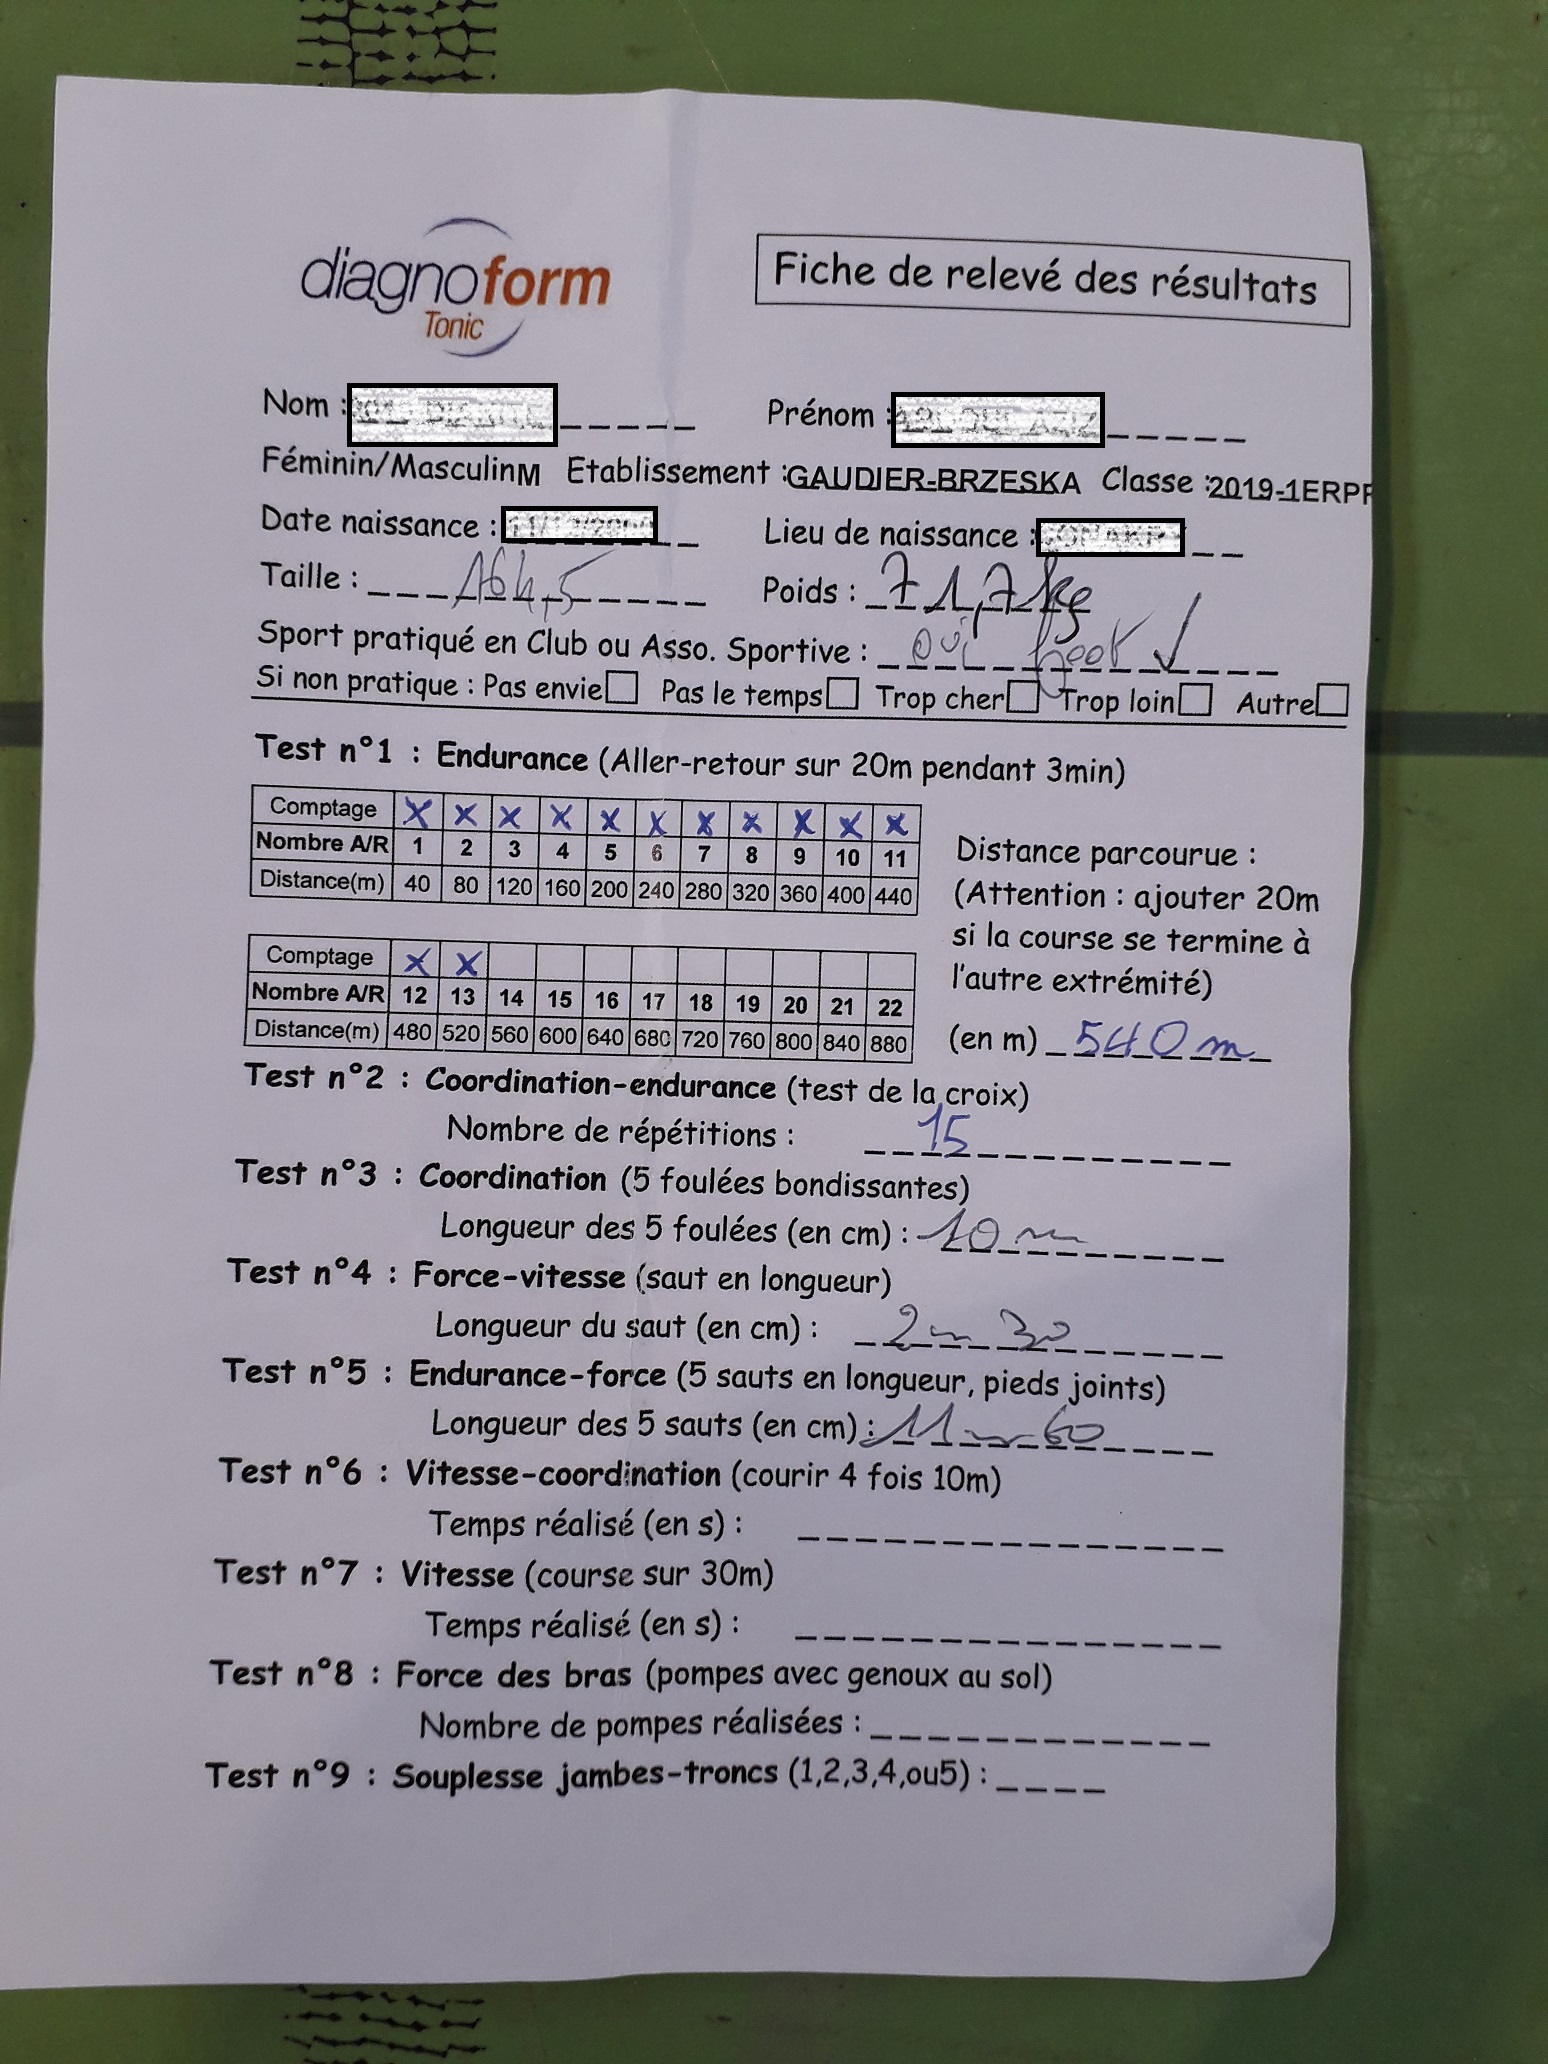 diagnoform
Tonic
Fiche de relevé des résultats
Nom : Prénom :
Féminin/MasculinM Etablissement :GAUDIER-BRZESKA Classe :2019-1ERPF
Date naissance : Lieu de naissance :
Taille : 164,5 Poids : 71,7 kg
Sport pratiqué en Club ou Asso. Sportive : oui foot ✓
Si non pratique : Pas envie☐ Pas le temps☐ Trop cher☐ Trop loin☐ Autre☐
Test n°1 : Endurance (Aller-retour sur 20m pendant 3min)
Comptage X X X X X X X X X X X
Nombre A/R 1 2 3 4 5 6 7 8 9 10 11
Distance(m) 40 80 120 160 200 240 280 320 360 400 440
Comptage X X
Nombre A/R 12 13 14 15 16 17 18 19 20 21 22
Distance(m) 480 520 560 600 640 680 720 760 800 840 880
Distance parcourue :
(Attention : ajouter 20m
si la course se termine à
l'autre extrémité)
(en m) 540 m
Test n°2 : Coordination-endurance (test de la croix)
Nombre de répétitions : 15
Test n°3 : Coordination (5 foulées bondissantes)
Longueur des 5 foulées (en cm) : 10 m
Test n°4 : Force-vitesse (saut en longueur)
Longueur du saut (en cm) : 2m 30
Test n°5 : Endurance-force (5 sauts en longueur, pieds joints)
Longueur des 5 sauts (en cm) : 11 m 60
Test n°6 : Vitesse-coordination (courir 4 fois 10m)
Temps réalisé (en s) :
Test n°7 : Vitesse (course sur 30m)
Temps réalisé (en s) :
Test n°8 : Force des bras (pompes avec genoux au sol)
Nombre de pompes réalisées :
Test n°9 : Souplesse jambes-troncs (1,2,3,4,ou5) :